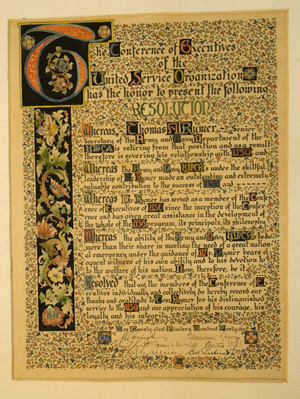 The Conference of Executives
of the
United Service Organizations
has the honor to present the following
RESOLUTION
Whereas, Thomas Rymer, Senior
Secretary of the Army and Navy Department of the
is retiring from that position and as a result
therefore is severing his relationship with USO and
Whereas the Army and Navy under the skillful
leadership of Mr. Rymer made an outstanding and extremely
valuable contribution to the success of USO and
Whereas Mr. Rymer has served as a member of the Confer-
ence of Executives of USO since the inception of the Confer-
ence and has given great assistance in the development of
the whole of the USO program, its principals, its philosophy
Whereas the ability of the Army and Navy
more than their share in meeting the need of a great nation
at emergency under the guidance of Mr. Rymer bears
eloquent witness of his own ability and to his devotion
to the welfare of his nation. Now, therefore, be it
Resolved that we, the members of the Conference of Ex-
ecutives individually and collectively do hereby record our
thanks and gratitude to Tom Rymer for his distinguished
service to the USO and our appreciation of his courage, his
loyalty and his integrity.
May Twenty first Nineteen Hundred Forty